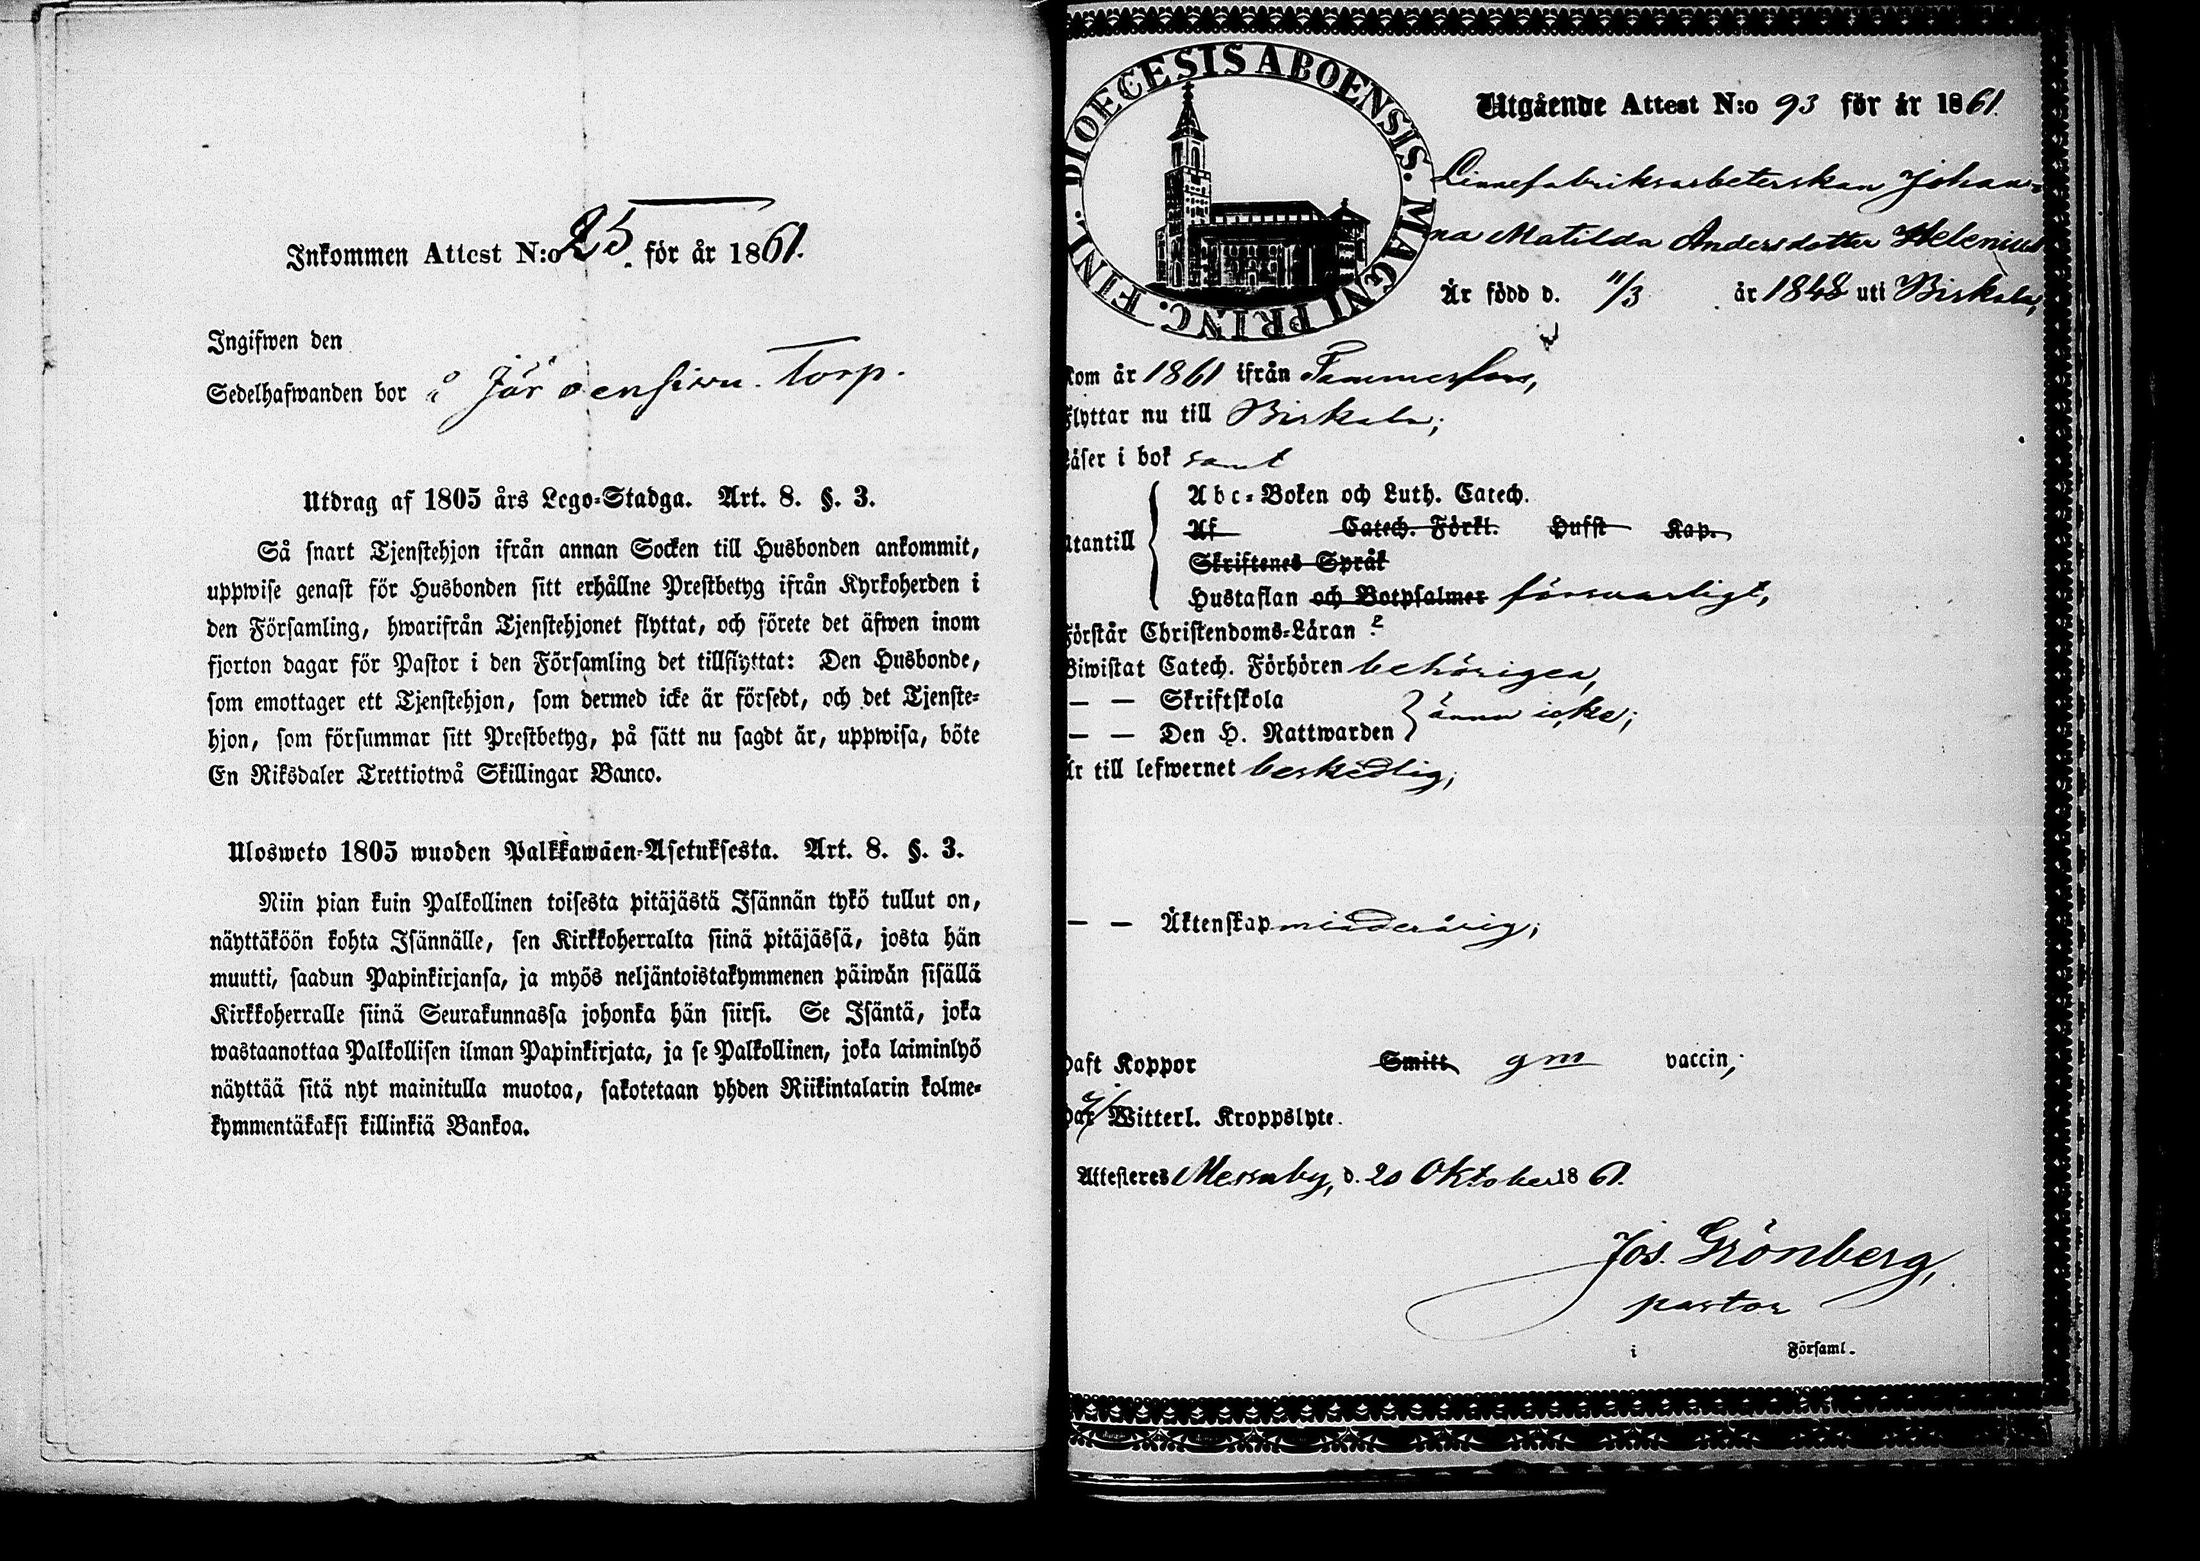 Inkommen Attest N:o 25. för år 1861.
Ingifwen den
Sedelhafwanden bor å Järvensivu Torp.
Utdrag af 1805 års Lego-Stadga. Art. 8. §. 3.
Så snart Tjenstehjon ifrån annan Socken till Husbonden ankommit,
uppwise genast för Husbonden sitt erhållne Prestbetyg ifrån Kyrkoherden i
den Församling, hwarifrån Tjenstehjonet flyttat, och förete det äfwen inom
fjorton dagar för Pastor i den Församling det tillflyttat: Den Husbonde,
som emottager ett Tjenstehjon, som dermed icke är försedt, och det Tjenste-
hjon, som försummar sitt Prestbetyg, på sätt nu sagdt är, uppwisa, böte
En Riksdaler Trettiotwå Skillingar Banco.
Ulosweto 1805 wuoden Palkkawäen-Asetuksesta. Art. 8. §. 3.
Niin pian kuin Palkollinen toisesta pitäjästä Isännän tykö tullut on,
näyttäköön kohta Isännälle, sen Kirkkoherralta siinä pitäjässä, josta hän
muutti, saadun Papinkirjansa, ja myös neljäntoistakymmenen päiwän sisällä
Kirkkoherralle siinä Seurakunnassa johonka hän siirsi. Se Isäntä, joka
wastaanottaa Palkollisen ilman Papinkirjata, ja se Palkollinen, joka laiminlyö
näyttää sitä nyt mainitulla muotoa, sakotetaan yhden Riikintalarin kolme-
kymmentäkaksi killinkiä Bankoa.
DIOECESIS ABOENSIS. MAGNI PRINC. FINL.
Utgående Attest N:o 93 för år 1861.
Linnefabriksarbeterskan Johan-
na Matilda Andersdotter Helenius
Är född d. 11/3 år 1848 uti Birkala,
kom år 1861 ifrån Tammerfors,
flyttar nu till Birkala;
Läser i bok samt
Abc-Boken och Luth. Catech.
Af Catech. Förkl. Hufst Kap.
utantill
Skriftenes Språk
Hustaflan och Botpsalmer försvarligt,
Förstår Christendoms-Läran
Biwistat Catech. Förhören behörigen,
— — Skriftskola
ännu icke;
— — Den H. Nattwarden
Är till lefwernet beskedlig;
— — Äktenskap minderårig;
Haft Koppor Smitt gm vaccin;
Har Witterl. Kroppslyte.
Attesteres Messuby, d. 20 Oktober 1861.
Jos. Grönberg,
pastor
i Församl.